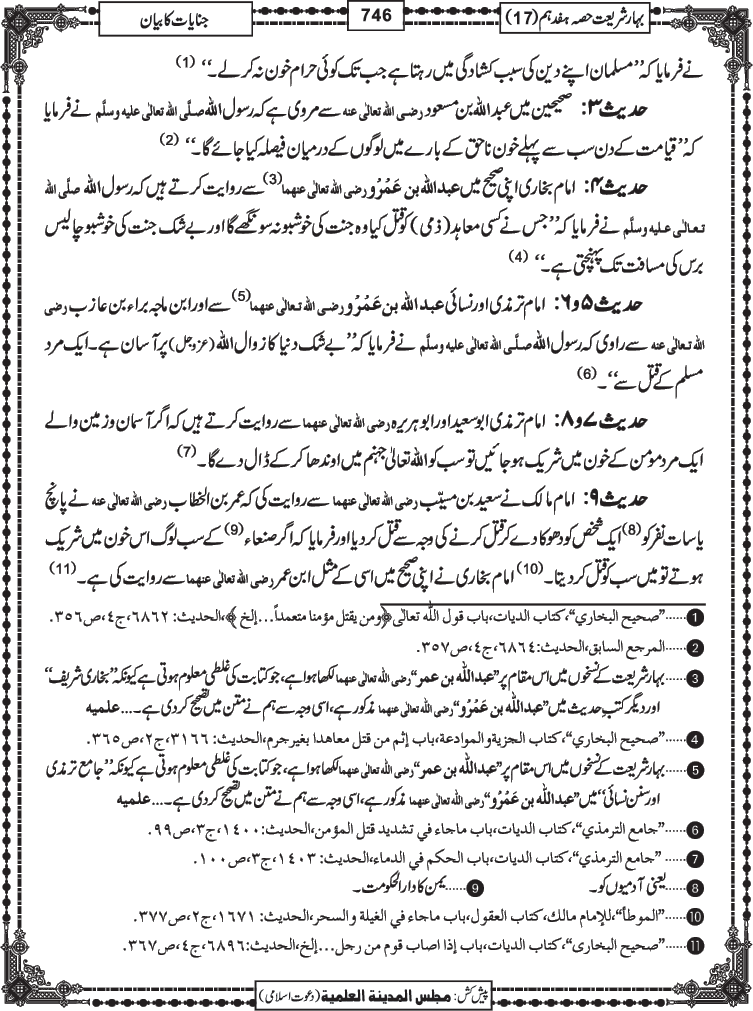 بہارِ شریعت حصہ ہفدہم (17)
746
جنایات کا بیان
نے فرمایا کہ ’’مسلمان اپنے دین کی سبب کشادگی میں رہتا ہے جب تک کوئی حرام خون نہ کرلے۔‘‘ (1)
حدیث ۳: صحیحین میں عبداللہ بن مسعود رضی اللہ تعالٰی عنہ سے مروی ہے کہ رسول اللہ صلَّی اللہ تعالٰی علیہ وسلَّم نے فرمایا
کہ ’’قیامت کے دن سب سے پہلے خون ناحق کے بارے میں لوگوں کے درمیان فیصلہ کیا جائے گا۔‘‘ (2)
حدیث ۴: امام بخاری اپنی صحیح میں عبداللہ بن عَمْرُو رضی اللہ تعالٰی عنہما(3) سے روایت کرتے ہیں کہ رسول اللہ صلَّی اللہ
تعالٰی علیہ وسلَّم نے فرمایا کہ ’’جس نے کسی معاہد (ذمی) کو قتل کیا وہ جنت کی خوشبو نہ سونگھے گا اور بے شک جنت کی خوشبو چالیس
برس کی مسافت تک پہنچتی ہے۔‘‘ (4)
حدیث ۵ و ۶: امام ترمذی اور نسائی عبداللہ بن عَمْرُو رضی اللہ تعالٰی عنہما(5) سے اور ابن ماجہ براء بن عازب رضی
اللہ تعالٰی عنہ سے راوی کہ رسول اللہ صلَّی اللہ تعالٰی علیہ وسلَّم نے فرمایا کہ ’’بے شک دنیا کا زوال اللہ (عزوجل) پر آسان ہے۔ ایک مرد
مسلم کے قتل سے‘‘۔ (6)
حدیث ۷ و ۸: امام ترمذی ابوسعید اور ابوہریرہ رضی اللہ تعالٰی عنہما سے روایت کرتے ہیں کہ اگر آسمان و زمین والے
ایک مرد مومن کے خون میں شریک ہوجائیں تو سب کو اللہ تعالیٰ جہنم میں اوندھا کرکے ڈال دے گا۔ (7)
حدیث ۹: امام مالک نے سعید بن مسیّب رضی اللہ تعالٰی عنہما سے روایت کی کہ عمر بن الخطاب رضی اللہ تعالٰی عنہ نے پانچ
یا سات نفر کو (8) ایک شخص کو دھوکا دے کر قتل کرنے کی وجہ سے قتل کردیا اور فرمایا کہ اگر صنعاء (9) کے سب لوگ اس خون میں شریک
ہوتے تو میں سب کو قتل کردیتا۔ (10) امام بخاری نے اپنی صحیح میں اسی کے مثل ابن عمر رضی اللہ تعالٰی عنہما سے روایت کی ہے۔ (11)
1 ......"صحيح البخاري"، كتاب الديات، باب قول اللّٰه تعالى ﴿ومن يقتل مؤمنا متعمداً...إلخ﴾، الحديث: ٦٨٦٢، ج٤، ص٣٥٦.
2 ......المرجع السابق، الحديث: ٦٨٦٤، ص٣٥٧.
3 ......بہار شریعت کے نسخوں میں اس مقام پر "عبداللہ بن عمر" رضی اللہ تعالٰی عنہما لکھا ہوا ہے، جو کتابت کی غلطی معلوم ہوتی ہے کیونکہ "بخاری شریف"
اور دیگر کتبِ حدیث میں "عبداللہ بن عَمْرُو" رضی اللہ تعالٰی عنہما مذکور ہے، اسی وجہ سے ہم نے متن میں تصحیح کردی ہے۔... علمیہ
4 ......"صحيح البخاري"، كتاب الجزية والموادعة، باب إثم من قتل معاهدا بغير جرم، الحديث: ٣١٦٦، ج٢، ص٣٦٥.
5 ......بہار شریعت کے نسخوں میں اس مقام پر "عبداللہ بن عمر" رضی اللہ تعالٰی عنہما لکھا ہوا ہے، جو کتابت کی غلطی معلوم ہوتی ہے کیونکہ "جامع ترمذی
اور سنن نسائی" میں "عبداللہ بن عَمْرُو" رضی اللہ تعالٰی عنہما مذکور ہے، اسی وجہ سے ہم نے متن میں تصحیح کردی ہے۔... علمیہ
6 ......"جامع الترمذي"، كتاب الديات، باب ماجاء في تشديد قتل المؤمن، الحديث: ١٤٠٠، ج٣، ص٩٩.
7 ...... "جامع الترمذي"، كتاب الديات، باب الحكم في الدماء، الحديث: ١٤٠٣، ج٣، ص١٠٠.
8 ......یعنی آدمیوں کو۔ 9 ......یمن کا دارالحکومت۔
10 ......"الموطأ"، للإمام مالك، كتاب العقول، باب ماجاء في الغيلة والسحر، الحديث: ١٦٧١، ج٢، ص٣٧٧.
11 ......"صحيح البخاري"، كتاب الديات، باب إذا اصاب قوم من رجل...إلخ، الحديث: ٦٨٩٦، ج٤، ص٣٦٧.
پیش کش: مجلس المدینة العلمیة (دعوتِ اسلامی)